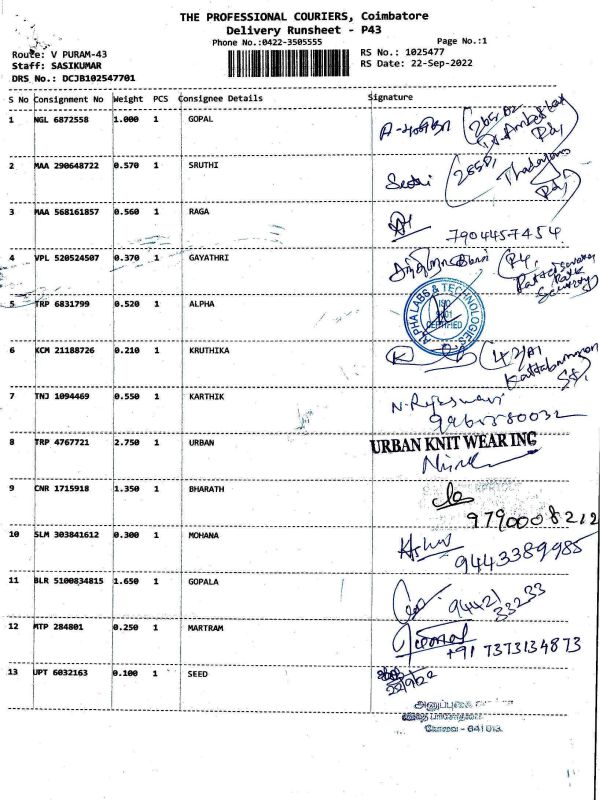 THE PROFESSIONAL COURIERS, Coimbatore
Delivery Runsheet - P43
Phone No.:0422-3505555 Page No.:1
Route: V PURAM-43 RS No.: 1025477
Staff: SASIKUMAR RS Date: 22-Sep-2022
DRS No.: DCJB102547701
S No Consignment No Weight PCS Consignee Details Signature
1 NGL 6872558 1.000 1 GOPAL
2 MAA 290648722 0.570 1 SRUTHI
3 MAA 568161857 0.560 1 RAGA
7904457454
4 VPL 520524507 0.370 1 GAYATHRI
5 TRP 6831799 0.520 1 ALPHA
ALPHA LABS & TECHNOLOGIES
ISO
9001
CERTIFIED
6 KCM 21188726 0.210 1 KRUTHIKA
7 TNJ 1094469 0.550 1 KARTHIK
8 TRP 4767721 2.750 1 URBAN
URBAN KNIT WEAR INC
9 CNR 1715918 1.350 1 BHARATH
9790008212
10 SLM 303841612 0.300 1 MOHANA
9443389985
11 BLR 5100834815 1.650 1 GOPALA
94421
33233
12 MTP 284801 0.250 1 MARTRAM
+91 7373134873
13 UPT 6032163 0.100 1 SEED
அனுப்புகை
கோவை - 641 013.